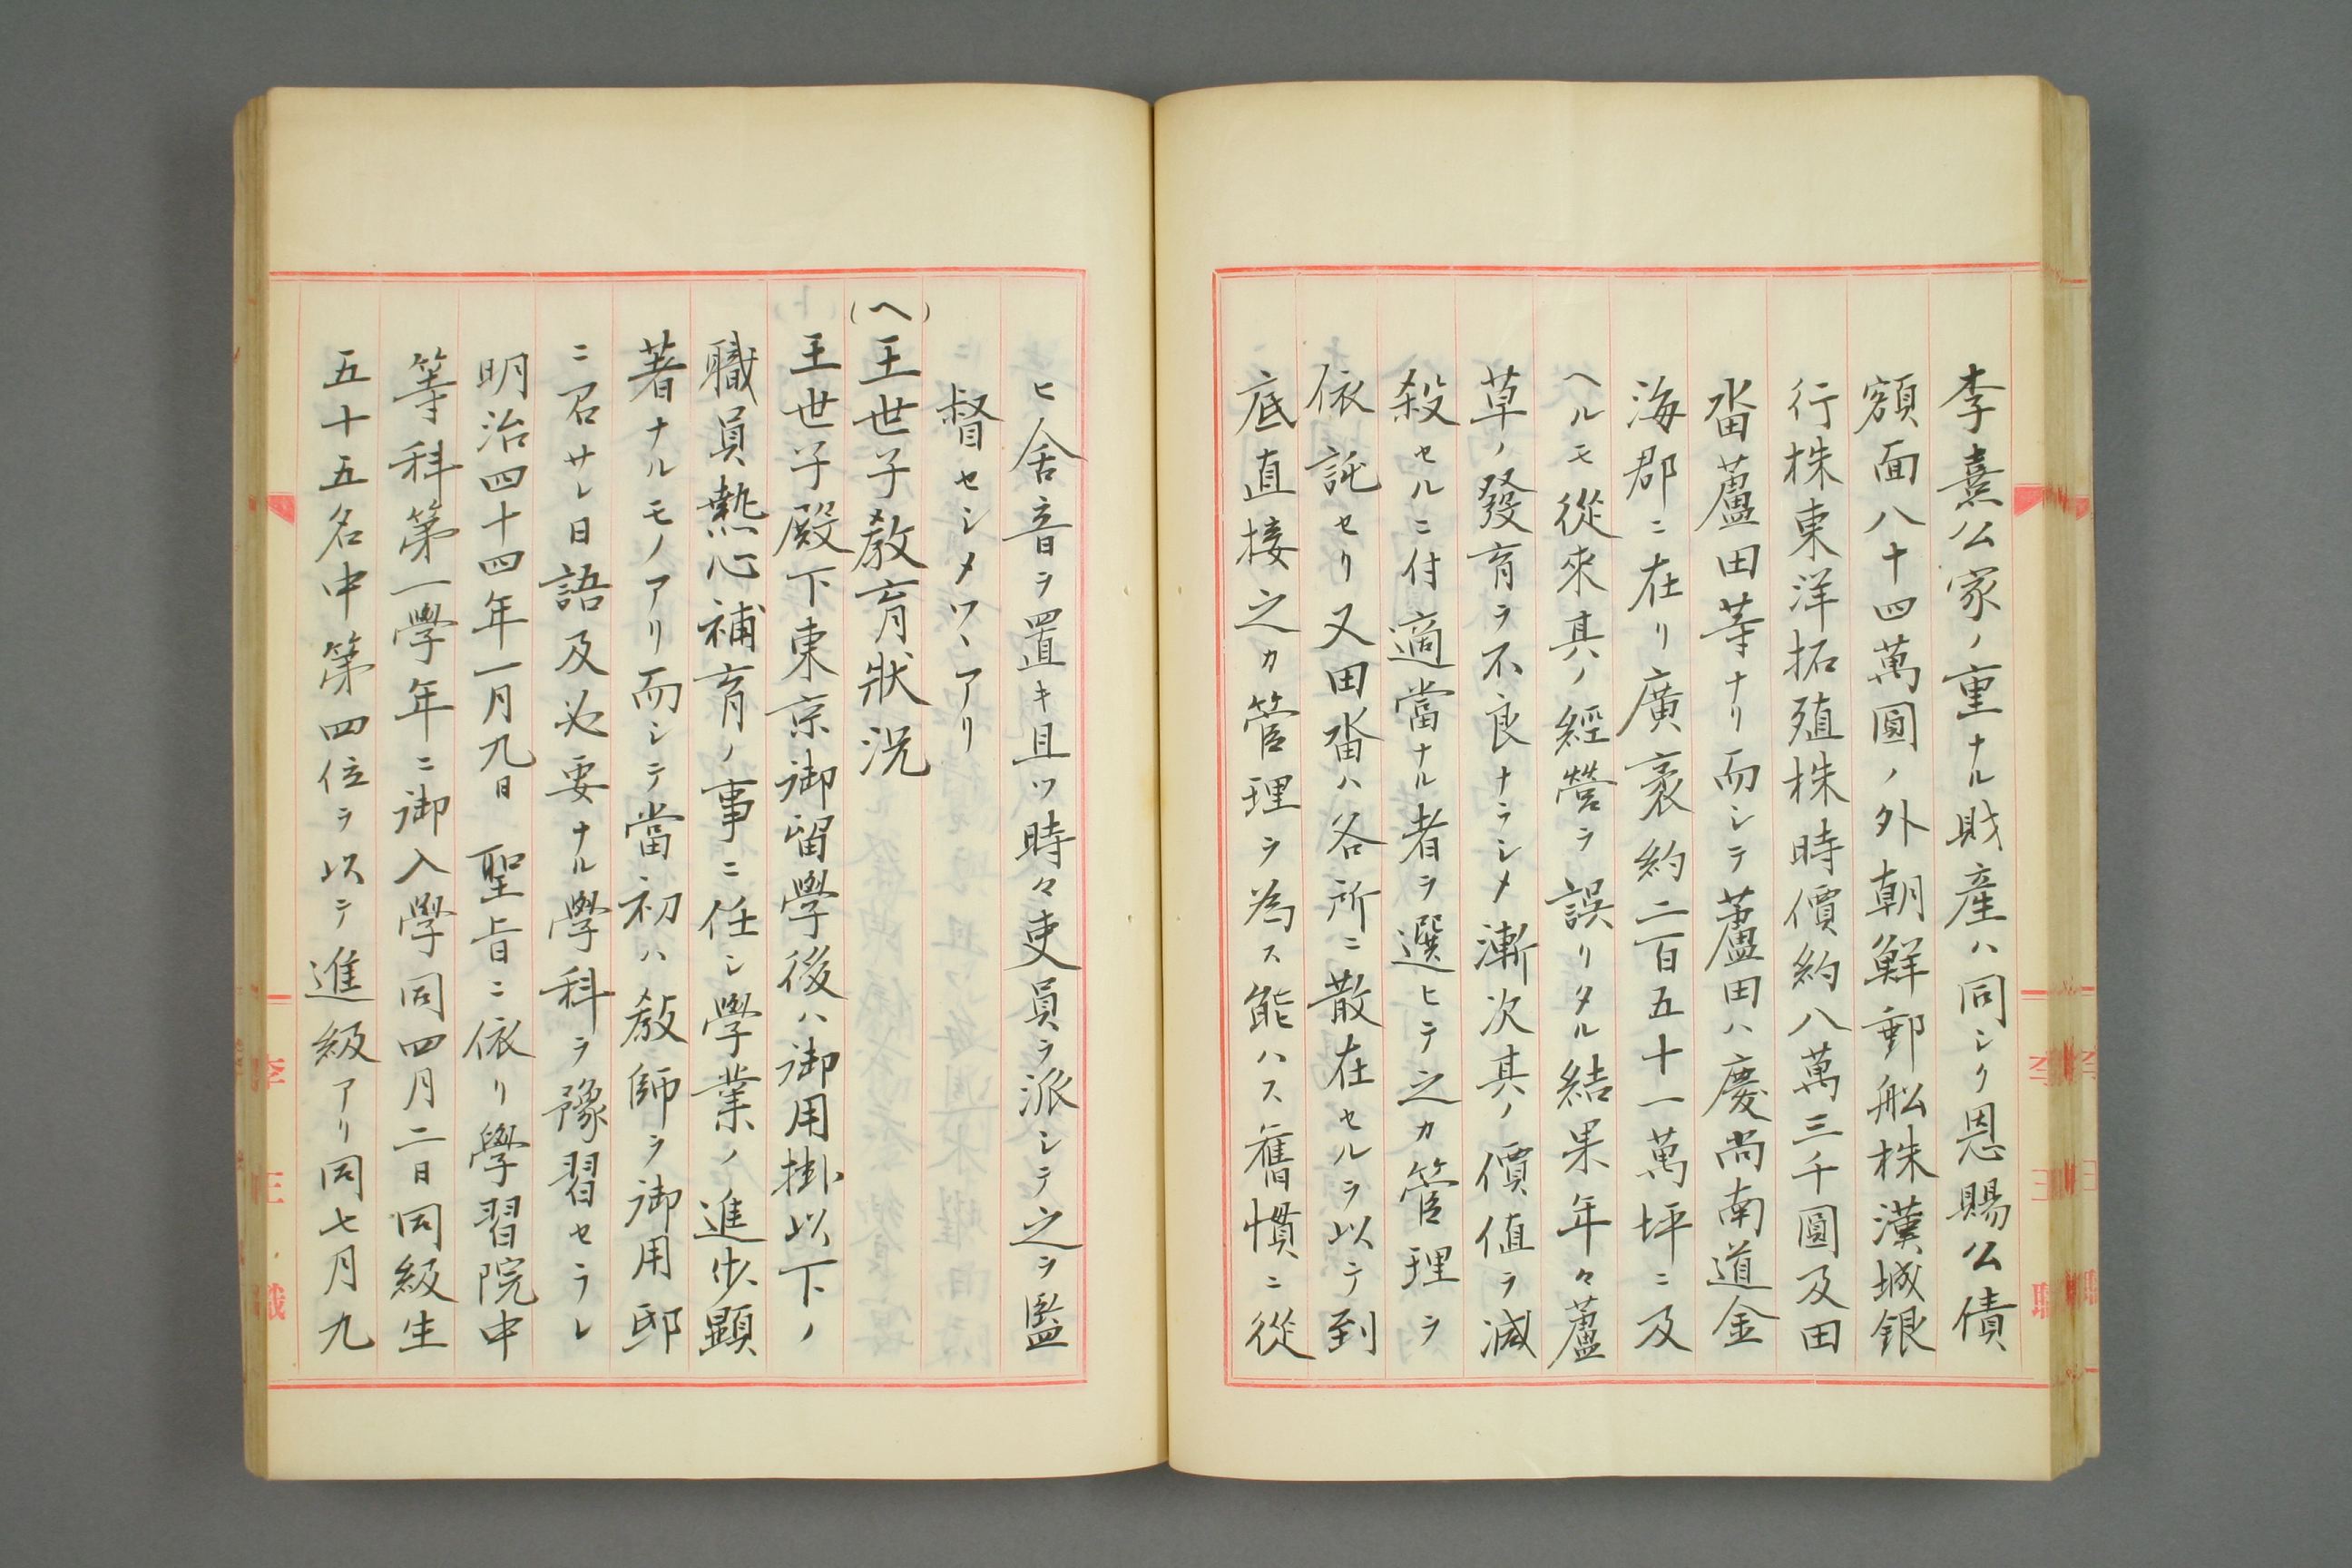 李熹公家ノ重ナル財産ハ同シク恩賜公債
額面八十四萬圓ノ外朝鮮郵船株漢城銀
行株東洋拓殖株時價約八萬三千圓及田
畓蘆田等ナリ而シテ蘆田ハ慶尚南道金
海郡ニ在リ廣袤約二百五十一萬坪ニ及
ヘルモ從來其ノ經營ヲ誤リタル結果年々蘆
草ノ發育ヲ不良ナラシメ漸次其ノ價値ヲ減
殺セルニ付適當ナル者ヲ選ヒテ之カ管理ヲ
依託セリ又田畓ハ各所ニ散在セルヲ以テ到
底直接之カ管理ヲ為ス能ハス舊慣ニ從
ヒ舍音ヲ置キ且ツ時々吏員ヲ派シテ之ヲ監
督セシメツヽアリ
(ヘ)王世子教育狀況
王世子殿下東京御留學後ハ御用掛以下ノ
職員熱心補育ノ事ニ任シ學業ノ進步顯
著ナルモノアリ而シテ當初ハ教師ヲ御用邸
ニ召サレ日語及必要ナル學科ヲ豫習セラレ
明治四十四年一月九日 聖旨ニ依リ學習院中
等科第一學年ニ御入學同四月二日同級生
五十五名中第四位ヲ以テ進級アリ同七月九
李王職